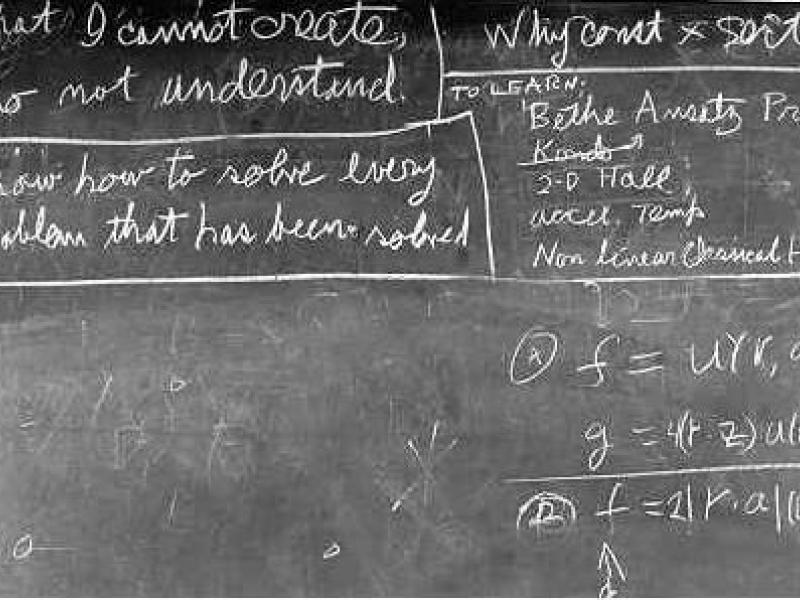 hat I cannot create,
o not understand.
now how to solve every
oblem that has been solved
Why const × sort
TO LEARN:
Bethe Ansatz Pr
Kondo
2-D Hall
accel. Temp
Non linear Classical H
Ⓐ f = u(r, a
g = 4(r·z) u(
f = 2|r·a|(